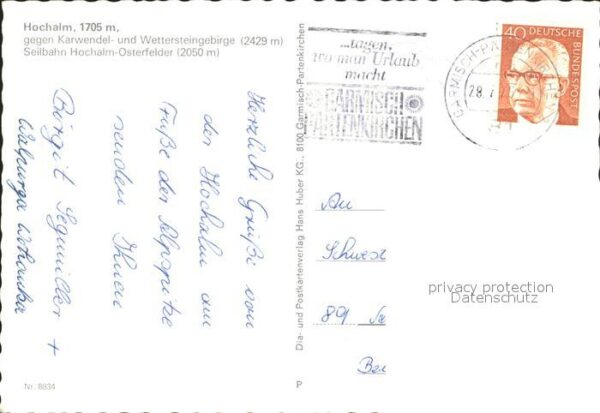 Hochalm, 1705 m,
gegen Karwendel- und Wettersteingebirge (2429 m)
Seilbahn Hochalm-Osterfelder (2050 m)
Herzliche Grüße von
der Hochalm am
Fuße der Alpspitze
senden Ihnen
Birgit +
Walpurga
Nr. 8834
Dia- und Postkartenverlag Hans Huber KG., 8100 Garmisch-Partenkirchen
P
...tagen,
wo man Urlaub
macht
GARMISCH
PARTENKIRCHEN
GARMISCH-PARTENKIRCHEN
28.
40
DEUTSCHE
BUNDESPOST
An
Schwest
89
privacy protection
Datenschutz